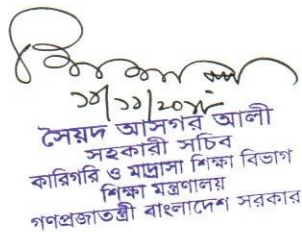 সৈয়দ আসগর আলী
সহকারী সচিব
কারিগরি ও মাদ্রাসা শিক্ষা বিভাগ
শিক্ষা মন্ত্রণালয়
গণপ্রজাতন্ত্রী বাংলাদেশ সরকার